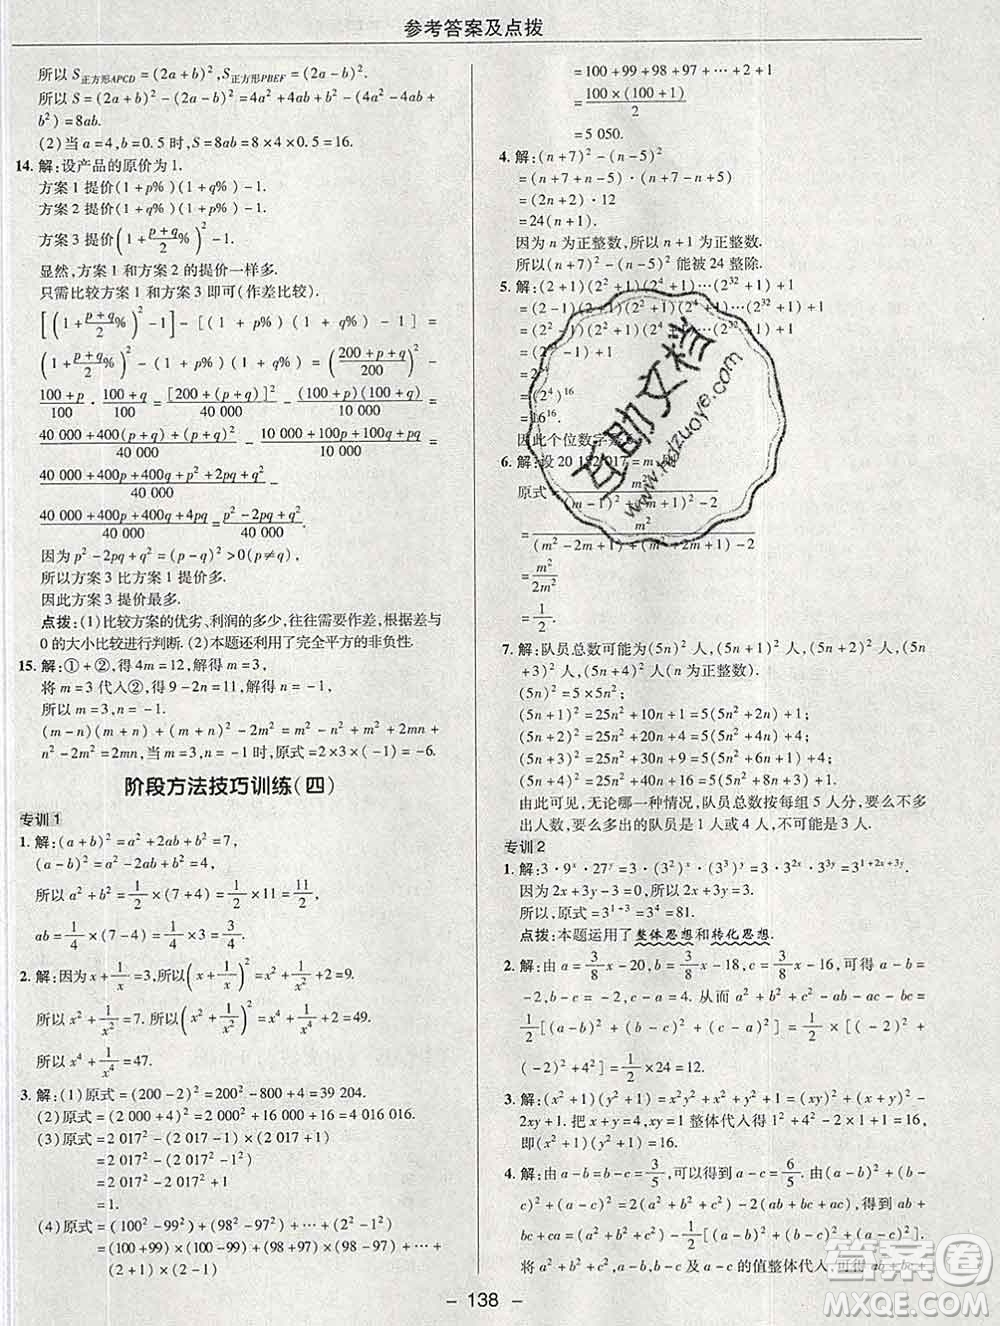 参考答案及点拨
所以 S正方形APCD=(2a+b)²,S正方形PBEF=(2a-b)².
所以 S=(2a+b)²-(2a-b)²=4a²+4ab+b²-(4a²-4ab+
b²)=8ab.
(2)当 a=4,b=0.5 时,S=8ab=8×4×0.5=16.
14.解:设产品的原价为 1.
方案 1 提价(1+p%)(1+q%)-1.
方案 2 提价(1+q%)(1+p%)-1.
方案 3 提价(1+(p+q)/2%)²-1.
显然,方案 1 和方案 2 的提价一样多.
只需比较方案 1 和方案 3 即可(作差比较).
[(1+(p+q)/2%)²-1]-[(1+p%)(1+q%)-1]=
(1+(p+q)/2%)²-(1+p%)(1+q%)=((200+p+q)/200)²-
(100+p)/100·(100+q)/100=[200+(p+q)]²/40 000-(100+p)(100+q)/10 000=
(40 000+400(p+q)+(p+q)²)/40 000-(10 000+100p+100q+pq)/10 000=
(40 000+400p+400q+p²+2pq+q²)/40 000-
(40 000+400p+400q+4pq)/40 000=(p²-2pq+q²)/40 000.
因为 p²-2pq+q²=(p-q)²>0(p≠q).
所以方案 3 比方案 1 提价多.
因此方案 3 提价最多.
点拨:(1)比较方案的优劣、利润的多少,往往需要作差,根据差与
0 的大小比较进行判断.(2)本题还利用了完全平方的非负性.
15.解:①+②,得 4m=12,解得 m=3,
将 m=3 代入②,得 9-2n=11,解得 n=-1.
所以 m=3,n=-1.
(m-n)(m+n)+(m+n)²-2m²=m²-n²+m²+2mn+
n²-2m²=2mn,当 m=3,n=-1 时,原式=2×3×(-1)=-6.
阶段方法技巧训练(四)
专训1
1.解:(a+b)²=a²+2ab+b²=7,
(a-b)²=a²-2ab+b²=4,
所以 a²+b²=1/2×(7+4)=1/2×11=11/2,
ab=1/4×(7-4)=1/4×3=3/4.
2.解:因为 x+1/x=3,所以(x+1/x)²=x²+1/x²+2=9.
所以 x²+1/x²=7.所以(x²+1/x²)²=x⁴+1/x⁴+2=49.
所以 x⁴+1/x⁴=47.
3.解:(1)原式=(200-2)²=200²-800+4=39 204.
(2)原式=(2 000+4)²=2 000²+16 000+16=4 016 016.
(3)原式=2 017²-(2 017-1)×(2 017+1)
=2 017²-(2 017²-1²)
=2 017²-2 017²+1
=1.
(4)原式=(100²-99²)+(98²-97²)+…+(2²-1²)
=(100+99)×(100-99)+(98+97)×(98-97)+…+
(2+1)×(2-1)
=100+99+98+97+…+2+1
=100×(100+1)/2
=5 050.
4.解:(n+7)²-(n-5)²
=(n+7+n-5)(n+7-n+5)
=(2n+2)·12
=24(n+1).
因为 n 为正整数,所以 n+1 为正整数.
所以(n+7)²-(n-5)²能被 24 整除.
5.解:(2+1)(2²+1)(2⁴+1)…(2³²+1)+1
=(2-1)(2+1)(2²+1)(2⁴+1)…(2³²+1)+1
=(2²-1)(2²+1)(2⁴+1)…(2³²+1)+1
=(2⁴)¹⁶
=16¹⁶.
因此个位数字是
6.解:设 20 182 017=m
原式=m²/((m-1)²+(m+1)²-2)
=m²/((m²-2m+1)+(m²+2m+1)-2)
=m²/2m²
=1/2.
7.解:队员总数可能为(5n)²人,(5n+1)²人,(5n+2)²人,(5n
+3)²人,(5n+4)²人(n 为正整数).
(5n)²=5×5n²;
(5n+1)²=25n²+10n+1=5(5n²+2n)+1;
(5n+2)²=25n²+20n+4=5(5n²+4n)+4;
(5n+3)²=25n²+30n+9=5(5n²+6n+1)+4;
(5n+4)²=25n²+40n+16=5(5n²+8n+3)+1.
由此可见,无论哪一种情况,队员总数按每组 5 人分,要么不多
出人数,要么多出的队员是 1 人或 4 人,不可能是其他人数.
专训2
1.解:3·9ˣ·27ʸ=3·(3²)ˣ·(3³)ʸ=3·3²ˣ·3³ʸ=3¹⁺²ˣ⁺³ʸ.
因为 2x+3y-3=0,所以 2x+3y=3.
所以,原式=3¹⁺³=3⁴=81.
点拨:本题运用了整体思想和转化思想.
2.解:由 a=3/8x-20,b=3/8x-18,c=3/8x-16,可得 a-b=
-2,b-c=-2,c-a=4.从而 a²+b²+c²-ab-ac-bc=
1/2[(a-b)²+(b-c)²+(c-a)²]=1/2×[(-2)²+
(-2)²+4²]=1/2×24=12.
3.解:(x²+1)(y²+1)=x²y²+x²+y²+1=(xy)²+(x+y)²-
2xy+1.把 x+y=4,xy=1 整体代入得 1²+4²-2×1+1=
16,即(x²+1)(y²+1)=16.
4.解:由 a-b=b-c=3/5,可以得到 a-c=6/5.由(a-b)²+(b-
c)²+(a-c)²=2(a²+b²+c²)-2(ab+bc+ac),得到 ab+
bc+ca=(a²+b²+c²)-1/2[(a-b)²+(b-c)²+(a-
c)²].将 a²+b²+c²,a-b,b-c 及 a-c 的值整体代入,可得 ab+bc+
- 138 -
互助文档
www.hdzuoye.com
答案圈
MXQE.COM